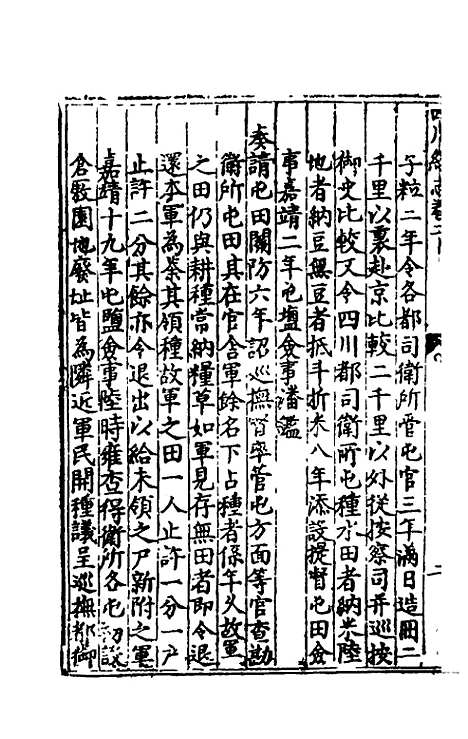 四川總志卷二
子粒二年令各都司衛所管屯官三年滿日造冊二
千里以裏赴京比較二千里以外從按察司并巡按
御史比較又令四川都司衛所屯種水田者納米陸
地者納豆無豆者抵斗折米八年添設提督屯田僉
事嘉靖二年屯鹽僉事潘鑑
奏請屯田關防六年詔巡撫督率管屯方面等官查勘
衛所屯田其在官舍軍餘名下占種者係年久故軍
之田仍與耕種當納糧草如軍見存無田者即令退
還本軍為業其領種故軍之田一人止許一分一戶
止許二分其餘亦令退出以給未領之戶新附之軍
嘉靖十九年屯鹽僉事陸時雍查得衛所各屯初設
倉敷園地廢址皆為隣近軍民開種議呈巡撫都御